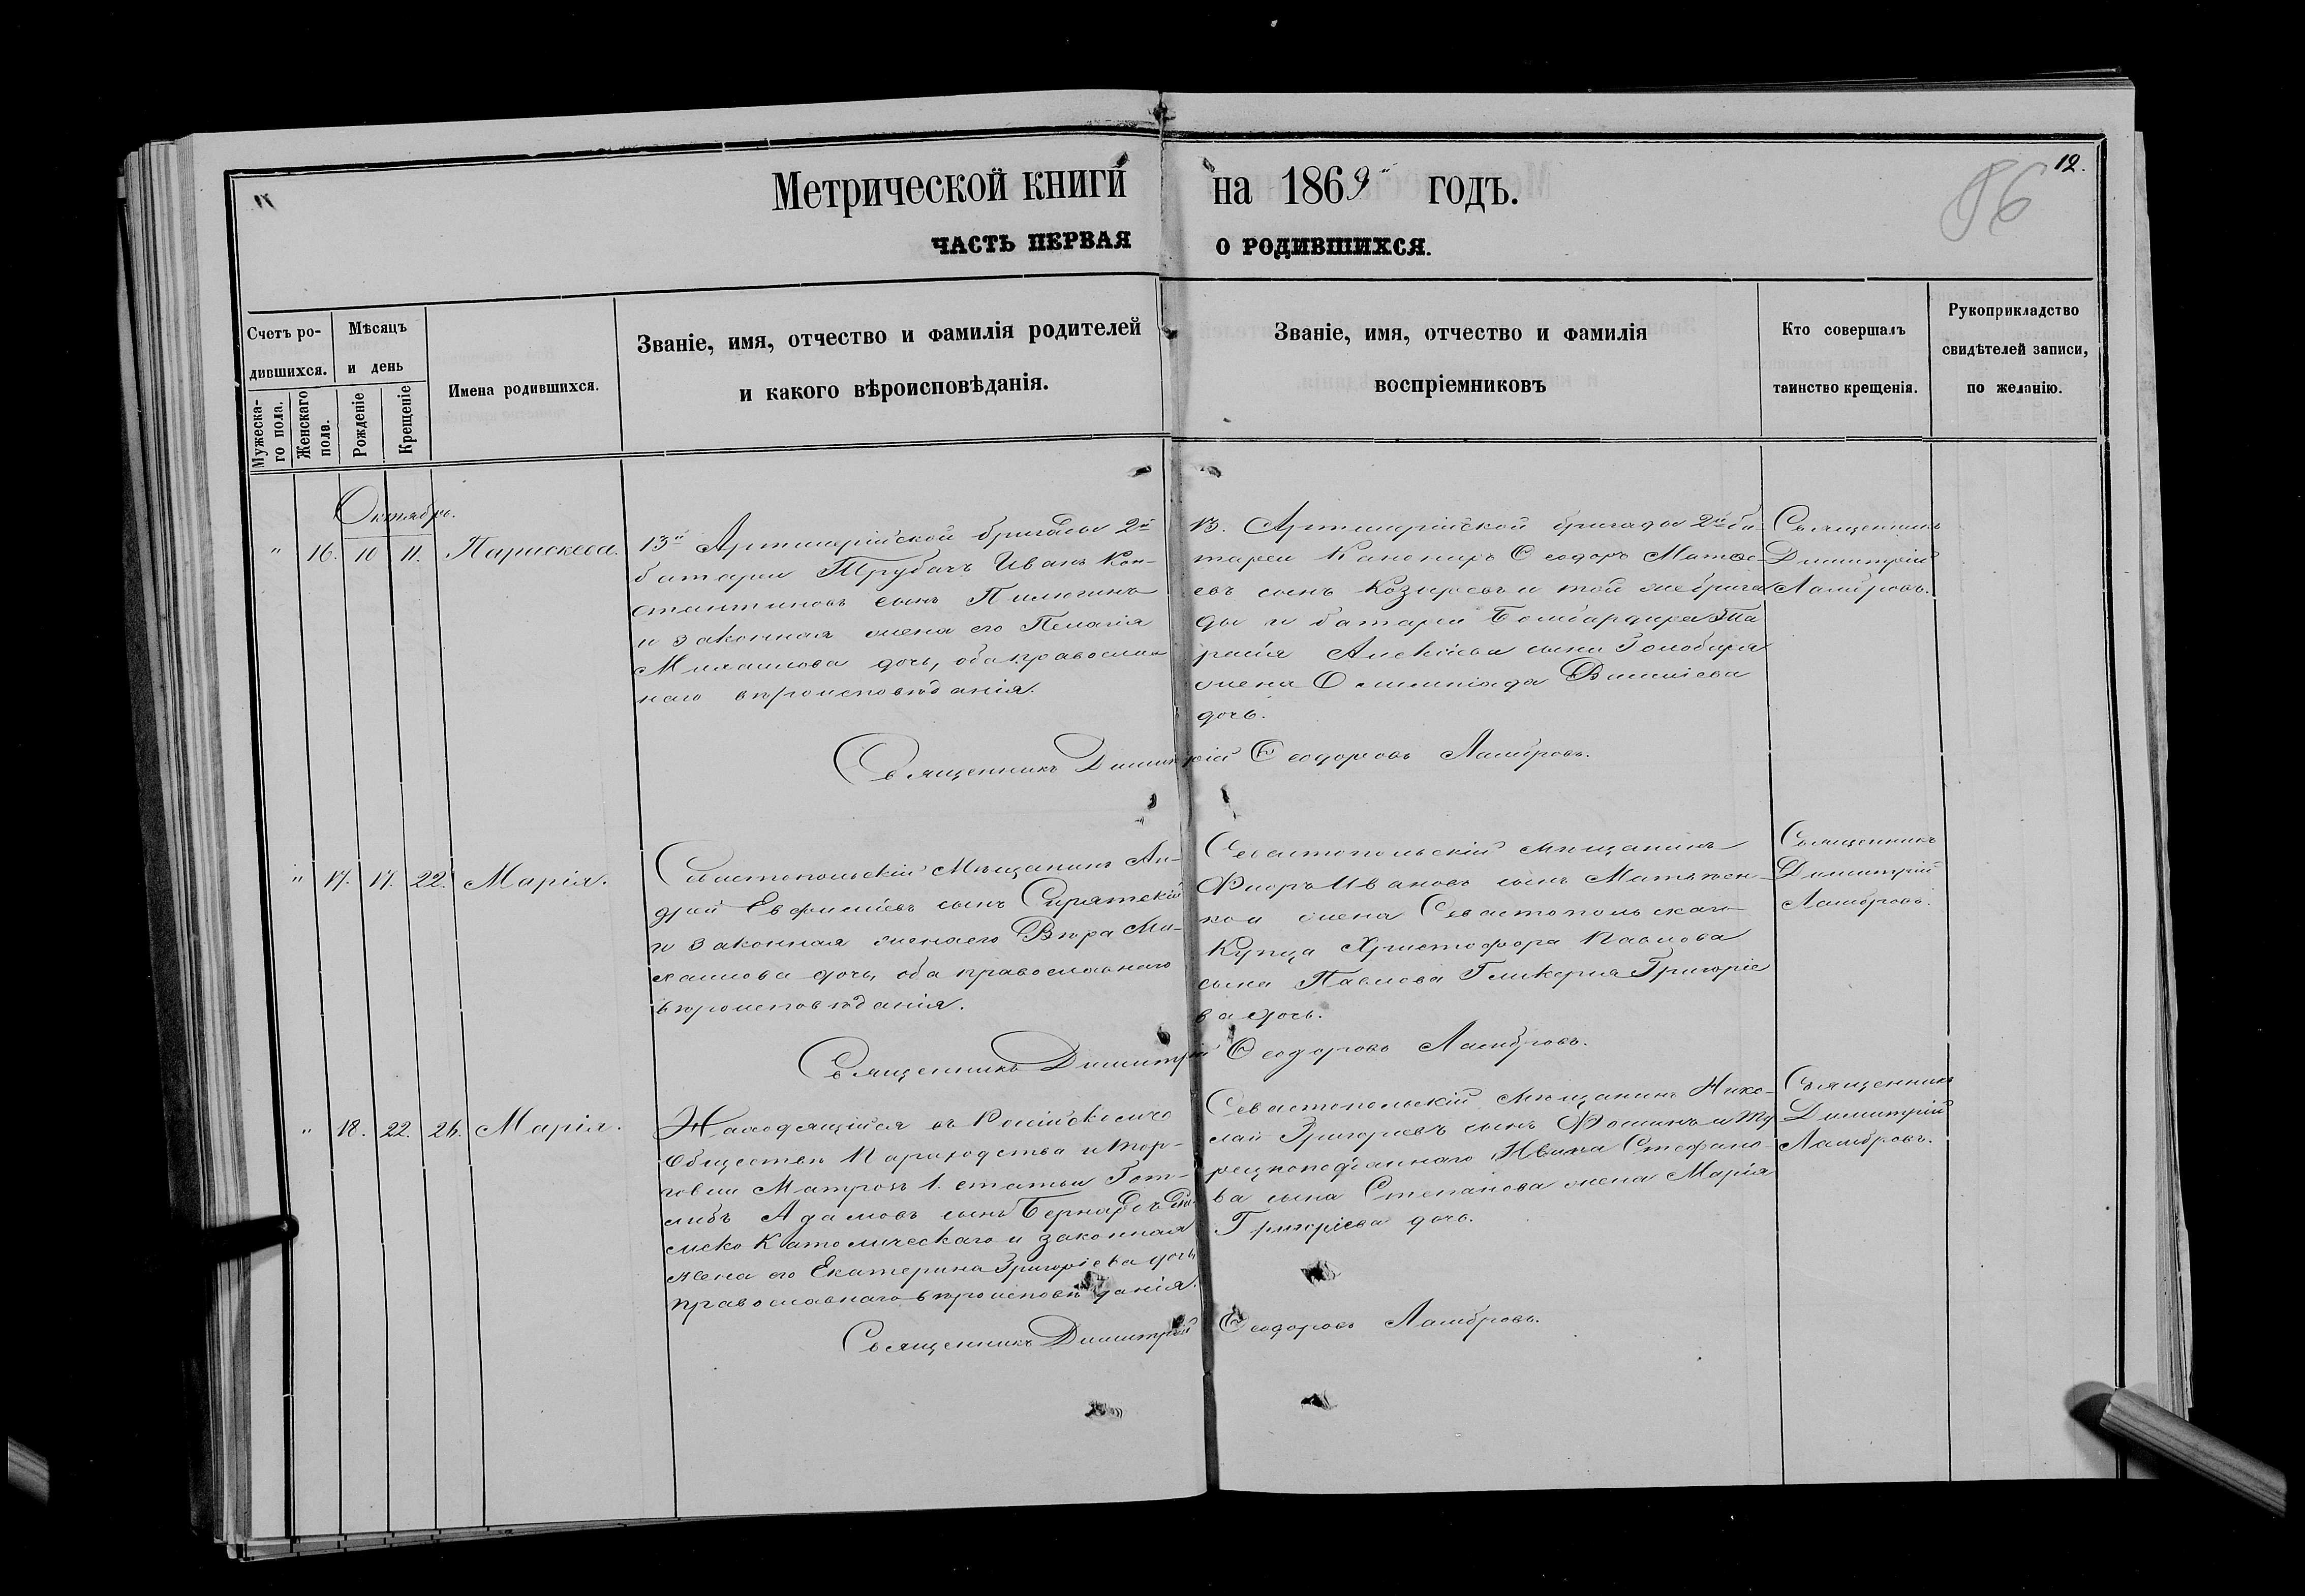 Метрической книги на 1869й годъ.
12.
86
ЧАСТЬ ПЕРВАЯ О РОДИВШИХСЯ.
Счетъ ро-
дившихся.
Мужеска-
го пола.
Женскаго
пола.
Мѣсяцъ
и день
Рожденіе
Крещеніе
Имена родившихся.
Званіе, имя, отчество и фамилія родителей
и какого вѣроисповѣданія.
Званіе, имя, отчество и фамилія
воспріемниковъ
Кто совершалъ
таинство крещенія.
Рукоприкладство
свидѣтелей записи,
по желанію.
Октябрь.
" 16. 10 11. Параскева.
13й Артилерійской бригады 2й
батареи Трубачъ Иванъ Кон-
стантиновъ сынъ Пилюгинъ
и законная жена его Пелагія
Михаилова дочь, оба православ
наго вѣроисповѣданія.
13. Артилерійской бригады 2й ба-
тареи Канониръ Ѳеодоръ Матѳе-
евъ сынъ Козыревъ и той же брига
ды и батареи Бомбардира Та
расія Алексіева сына Голобира
жена Олимпіада Василіева
дочь.
Священникъ
Димитрій
Ламбровъ.
Священникъ Димитрій Ѳеодоровъ Ламбровъ.
" 17. 17. 22. Марія.
Севастопольскій Мѣщанинъ Ан-
дрей Евфиміевъ сынъ Сирятскій
и законная жена его Вѣра Ми-
хаилова дочь, оба православнаго
вѣроисповѣданія.
Севастопольскій мѣщанинъ
Ѳиоръ Ивановъ сынъ
жена Севастопольскаго
Купца Христофора Павлова
сына Павлова Гликерия Григоріе
ва дочь.
Священникъ
Димитрій
Ламбровъ.
Священникъ Димитрій Ѳеодоровъ Ламбровъ.
" 18. 22. 26. Марія.
Находящійся въ Російскомъ
Обществѣ Пароходства и Тор-
говли Матросъ 1. статьи Гот-
либъ Адамовъ сынъ Бернардъ Ри-
мско Католическаго и законная
жена его Екатерина Григоріева дочь
православнаго вѣроисповѣданія.
Севастопольскій Мѣщанинъ Нико-
лай Григорьевъ сынъ Ѳоминъ и Ту
рецкоподданнаго Ивана Стефано-
ва сына Степанова жена Марія
Григоріева дочь.
Священникъ
Димитрій
Ламбровъ.
Священникъ Димитрій Ѳеодоровъ Ламбровъ.